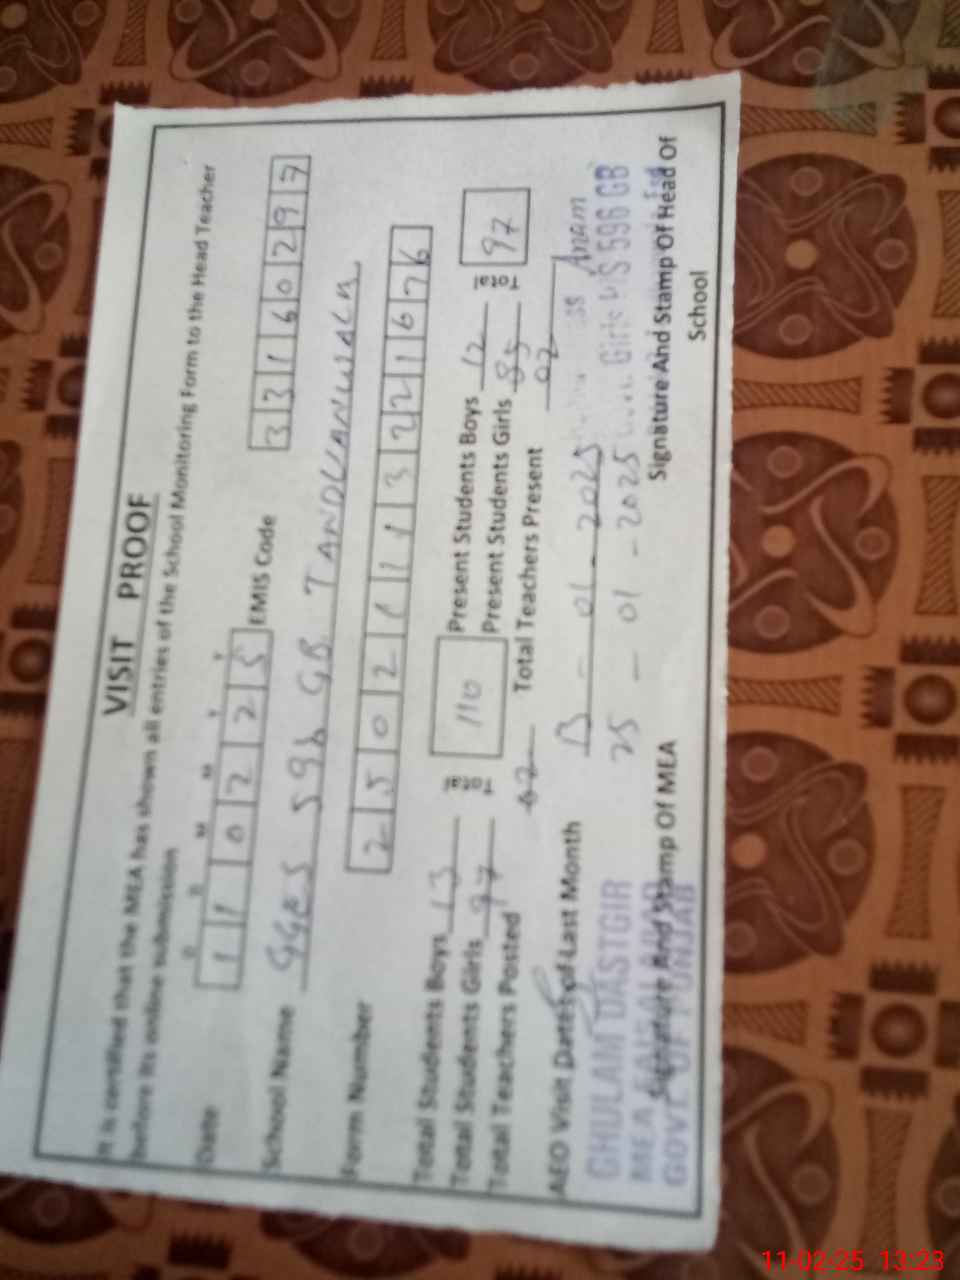 VISIT PROOF
It is certified that the MEA has shown all entries of the School Monitoring Form to the Head Teacher
before its online submission
D D M M Y Y
Date 1 1 0 2 2 5 EMIS Code 3 3 1 6 0 2 9 7
School Name GGES 596 GB TANDLIANWALA
Form Number 2 5 0 2 1 1 1 3 2 2 1 6 7 6
Total Students Boys 13 Total 110 Present Students Boys 12 Total 97
Total Students Girls 97 Present Students Girls 85
Total Teachers Posted 02 Total Teachers Present 02
AEO Visit Dates of Last Month 13 - 01 - 2025
25 - 01 - 2025
Anam
Girls H/S 596 GB
GHULAM DASTGIR
MEA FAISALABAD
GOVT. OF PUNJAB
Signature And Stamp Of MEA
Signature And Stamp Of Head Of
School
11-02-25 13:23